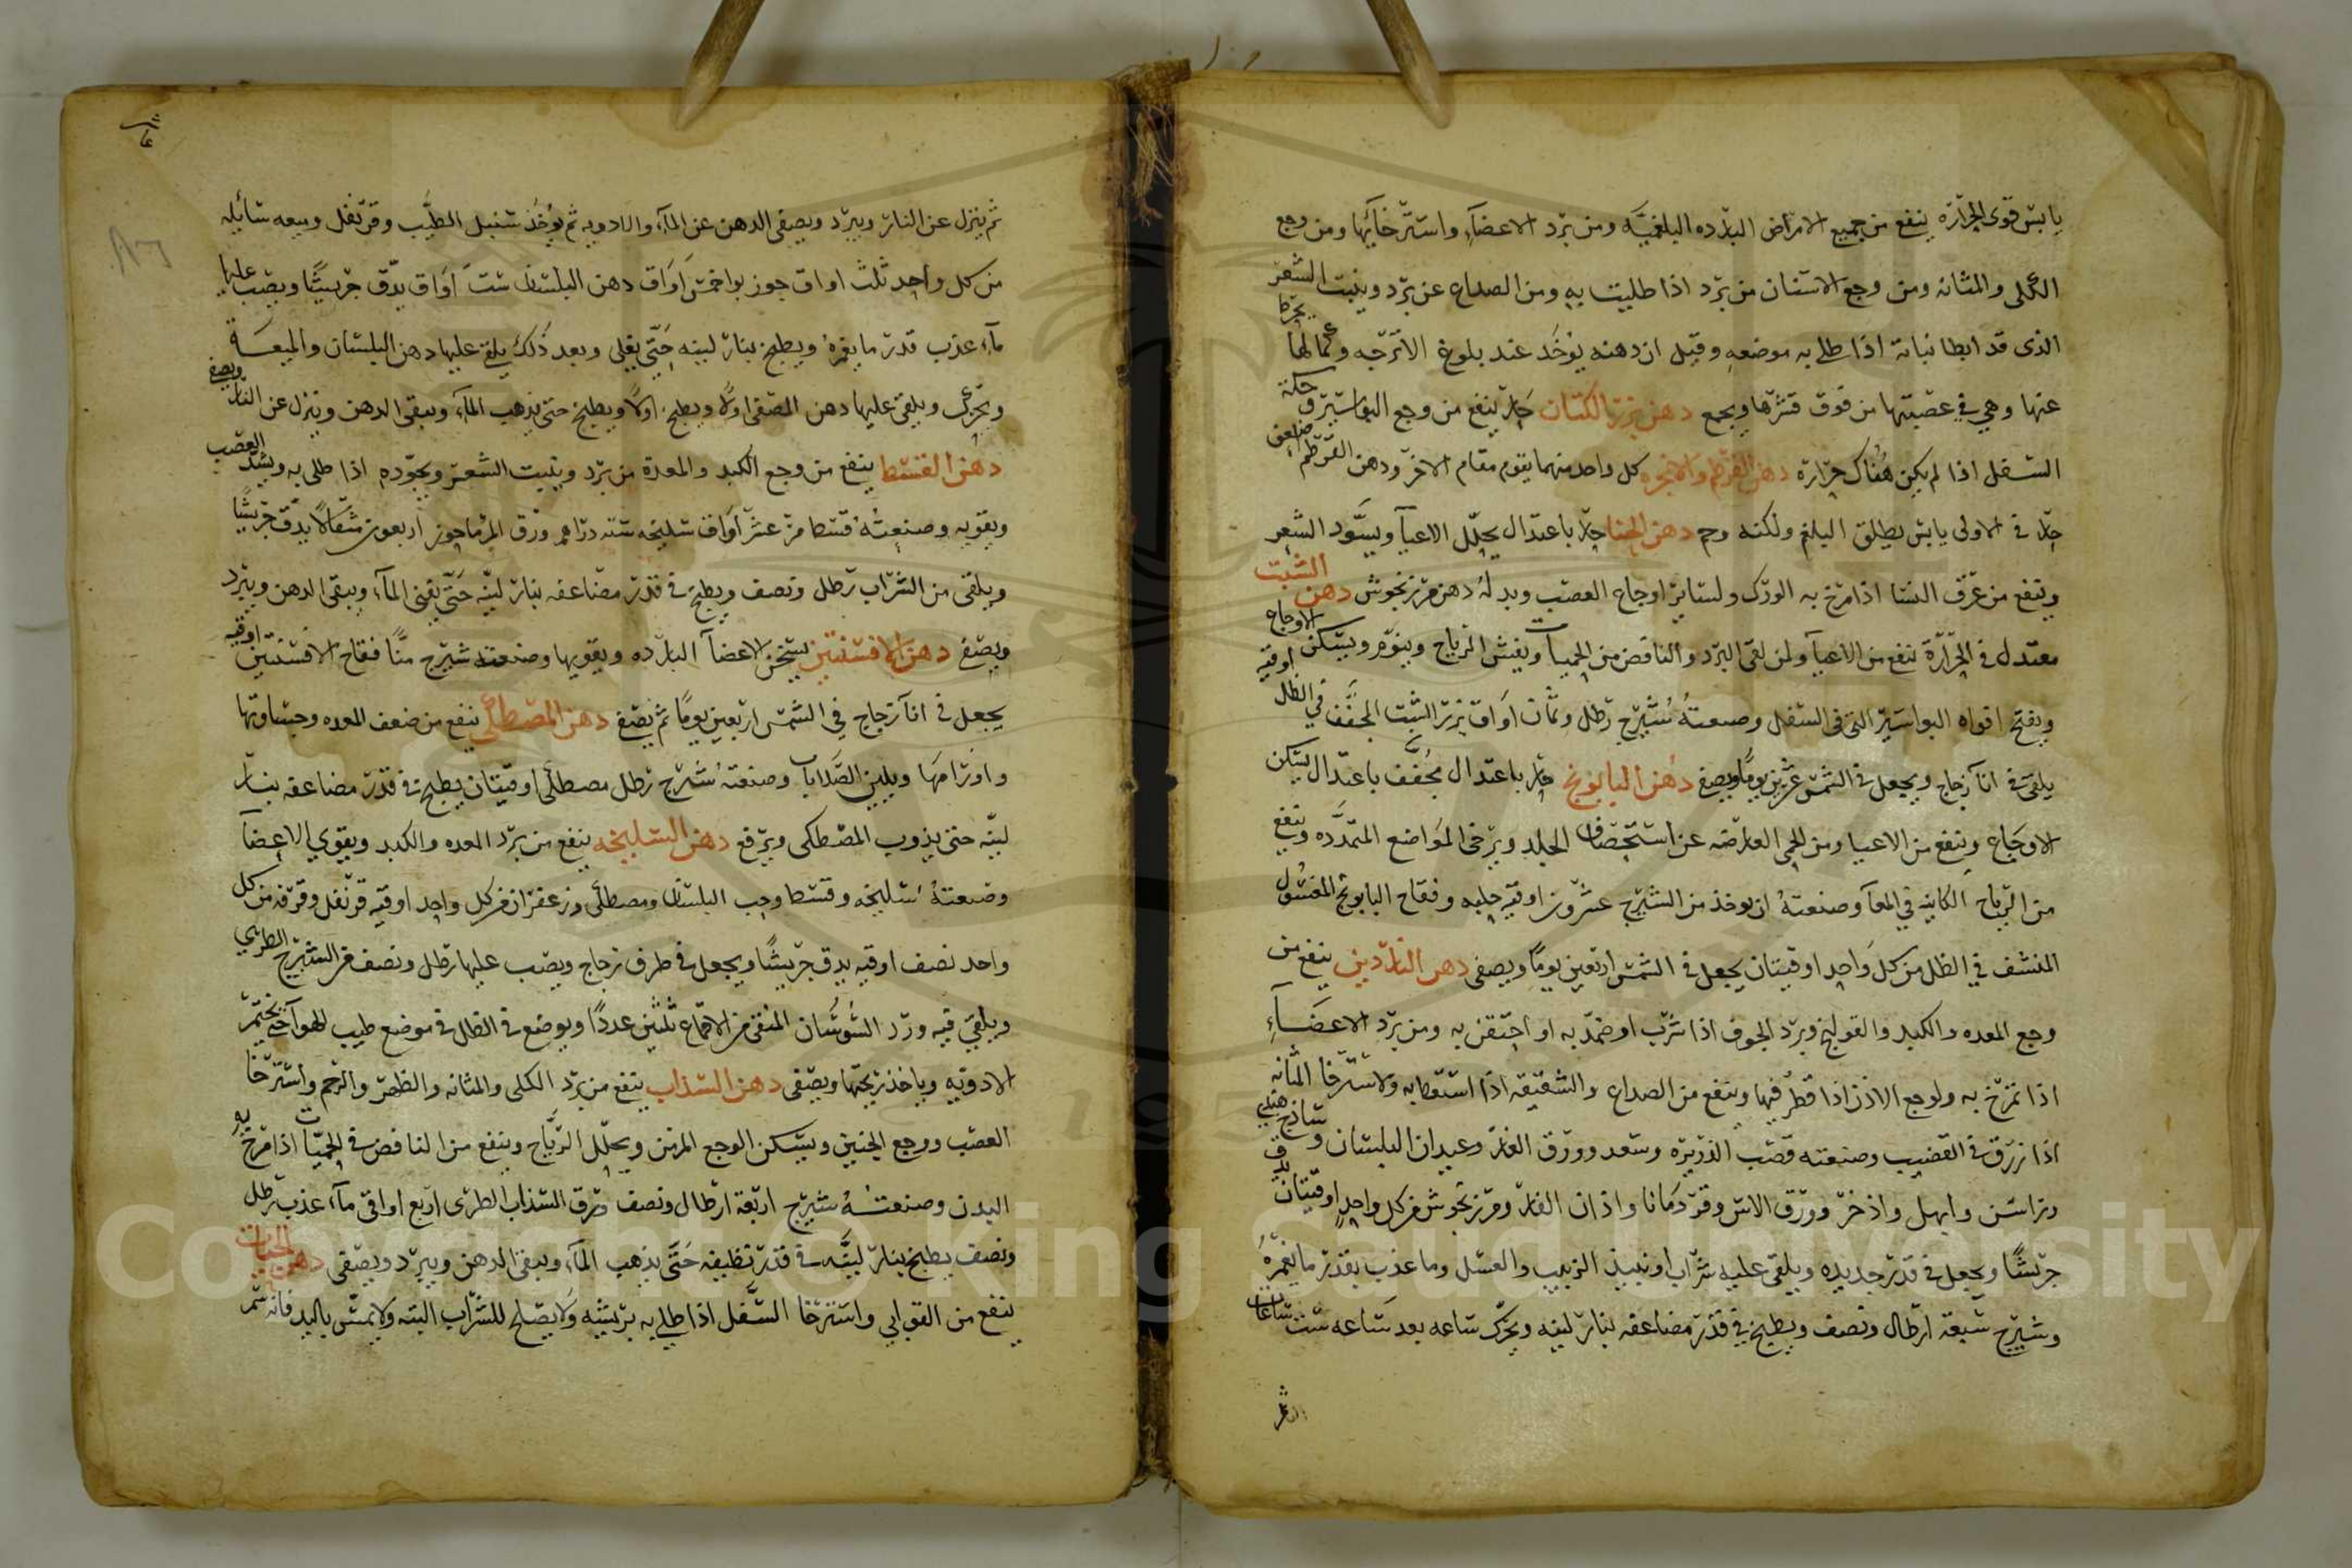 يابس قوى الحرارة ينفع من جميع الامراض البارده البلغميه ومن برد الاعضآء واسترخآئها ومن وجع
الكلى والمثانه ومن وجع الاسنان من برد اذا طليت به ومن الصداع عن برد وينبت الشعر
الذى قد ابطا نباته اذا طلى به موضعه وقيل ان دهنه يوخذ عند بلوغ الاترجه وكمالها
عنها وهي في عصبتها من فوق قشرها ويجمع دهن بزر الكتان حار ينفع من وجع البواسير وحكة
السفل اذا لم يكن هناك حرارة دهن القرطم والانجره كل واحد منهما يقوم مقام الاخر ودهن القرطم
حار في الاولى يابس يطلق البلغم ولكنه دهن الحنا حار باعتدال يحلل الاعيآ ويسود الشعر
وينفع من عرق النسا اذا مرخ به الورك ولساير اوجاع العصب وبدله دهن مرزنجوش دهن الشبت
معتدل في الحرارة ينفع من الاعيآ ولمن لقى البرد والنافض من الحميات ويفش الرياح وينوم ويسكن الاوجاع
ويفتح افواه البواسير التى في السفل وصنعته شيرج رطل وثمان اواق بزر الشبت المجفف في الظل اوقيه
يلقى في انآ زجاج ويجعل في الشمس عشرين يومًا ويصفى دهن البابونج حار باعتدال مجفف باعتدال يسكن
الاوجاع وينفع من الاعيا ومن الحمى العارضه عن استحصاف الجلد ويرخى المواضع المتمدده وينفع
من الرياح الكاينه في المعآ وصنعته ان يوخذ من الشيرج عشرون اوقيه حلبه وفقاح البابونج المغسول
المنشف في الظل من كل واحد اوقيتان يجعل في الشمس اربعين يومًا ويصفى دهن الناردين ينفع من
وجع المعده والكبد والقولنج وبرد الجوف اذا شرب او ضمد به او احتقن به ومن برد الاعضآء
اذا تمرخ به ولوجع الاذن اذا قطر فيها وينفع من الصداع والشقيقه اذا استعط به ولاسترخا المثانه
اذا زرق في القضيب وصنعته قصب الذريره وسعد وورق الغار وعيدان البلسان وساذج هندى
وراسن وابهل واذخر وورق الاس وقردمانا واذان الفار ومرزنجوش من كل واحد اوقيتان يدق
جريشًا ويجعل في قدر جديده ويلقى عليه شراب او نبيذ الزبيب والعسل وما عذب بقدر ما يغمره
وشيرج سبعة ارطال ونصف ويطبخ في قدر مضاعفه بنار لينه ويحرك ساعه بعد ساعه ست ساعات
ثم ينزل عن النار ويبرد ويصفى الدهن عن المآء والادويه ثم يوخذ سنبل الطيب وقرنفل وميعه سائله
من كل واحد ثلث اواق جوز بوا خمس اواق دهن البلسان ست اواق يدق جريشًا ويصب عليها
مآء عذب قدر ما يغمره ويطبخ بنار لينه حتى يغلى وبعد ذلك يلقى عليها دهن البلسان والميعة
ويحرك ويلقى عليها دهن المصفى اولًا ويطبخ اولًا ويطبخ حتى يذهب المآء ويبقى الدهن وينزل عن النار ويصفى
دهن القسط ينفع من وجع الكبد والمعدة من برد وينبت الشعر ويجوده اذا طلى به ويشد العصب
ويقويه وصنعته قسط مر عشر اواق سليخه سته دراهم ورق المرماحوز اربعون مثقالًا يدق جريشًا
ويلقى من الشراب رطل ونصف ويطبخ في قدر مضاعفه بنار لينه حتى يفنى المآء ويبقى الدهن ويبرد
ويصفى دهن الافسنتين يسخن الاعضآ البارده ويقويها وصنعته شيرج منًا فقاح الافسنتين اوقيه
يجعل في انآ زجاج في الشمس اربعين يومًا ثم يصفى دهن المصطكى ينفع من ضعف المعده وجساوتها
واورامها ويلين الصلابات وصنعته شيرج رطل مصطكى اوقيتان يطبخ في قدر مضاعفه بنار
لينه حتى يذوب المصطكى ويرفع دهن السليخه ينفع من برد المعده والكبد ويقوي الاعضآ
وصنعته سليخه وقسط وحب البلسان ومصطكى وزعفران من كل واحد اوقيه قرنفل وقرفه من كل
واحد نصف اوقيه يدق جريشًا ويجعل في ظرف زجاج ويصب عليها رطل ونصف من الشيرج الطري
ويلقى فيه ورد السوسان المنقى من الاقماع ثلثين عددًا ويوضع في الظل في موضع طيب للهوآ حتى يختمر
الادويه وياخذ ريحتها ويصفى دهن السذاب ينفع من برد الكلى والمثانه والظهر والرحم واسترخا
العصب ووجع الجنبين ويسكن الوجع المزمن ويحلل الرياح وينفع من النافض في الحميات اذا مرخ به
البدن وصنعته شيرج اربعة ارطال ونصف ورق السذاب الطرى اربع اواقى مآء عذب رطل
ونصف يطبخ بنار لينه في قدر نظيفه حتى يذهب المآء ويبقى الدهن ويبرد ويصفى دهن الحيات
ينفع من القوابي واسترخا السفل اذا طلى به بريشه ولا يصلح للشراب البته ولا يمس باليد فانه سم